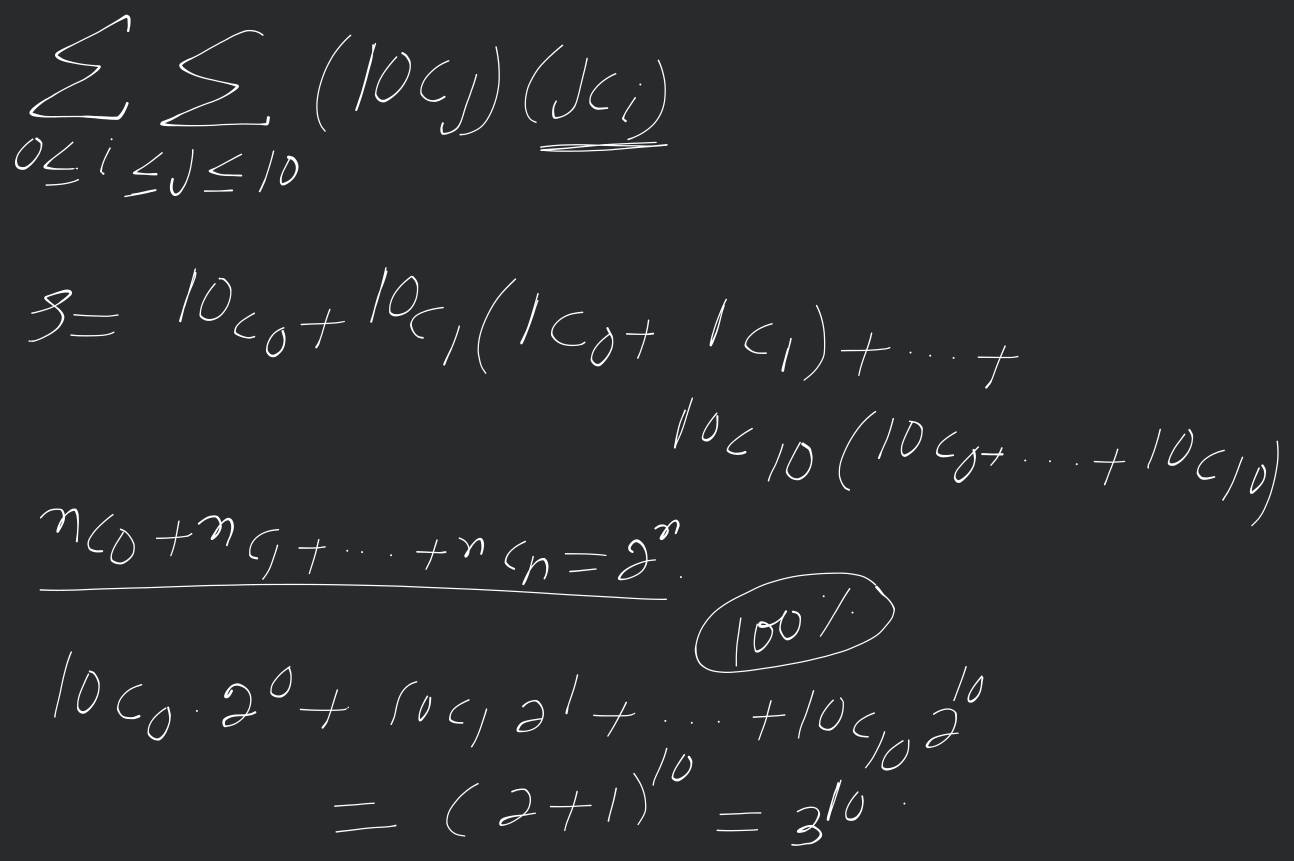 ∑ ∑ (10Cj) (jCi)
0≤i≤j≤10
S= 10C0+ 10C1 (1C0+ 1C1)+ ... +
10C10 (10C0+ ... + 10C10)
nC0 + nC1 + ... + nCn = 2^n.
100%
10C0 . 2^0 + 10C1 2^1 + ... + 10C10 2^10
= (2+1)^10 = 3^10.